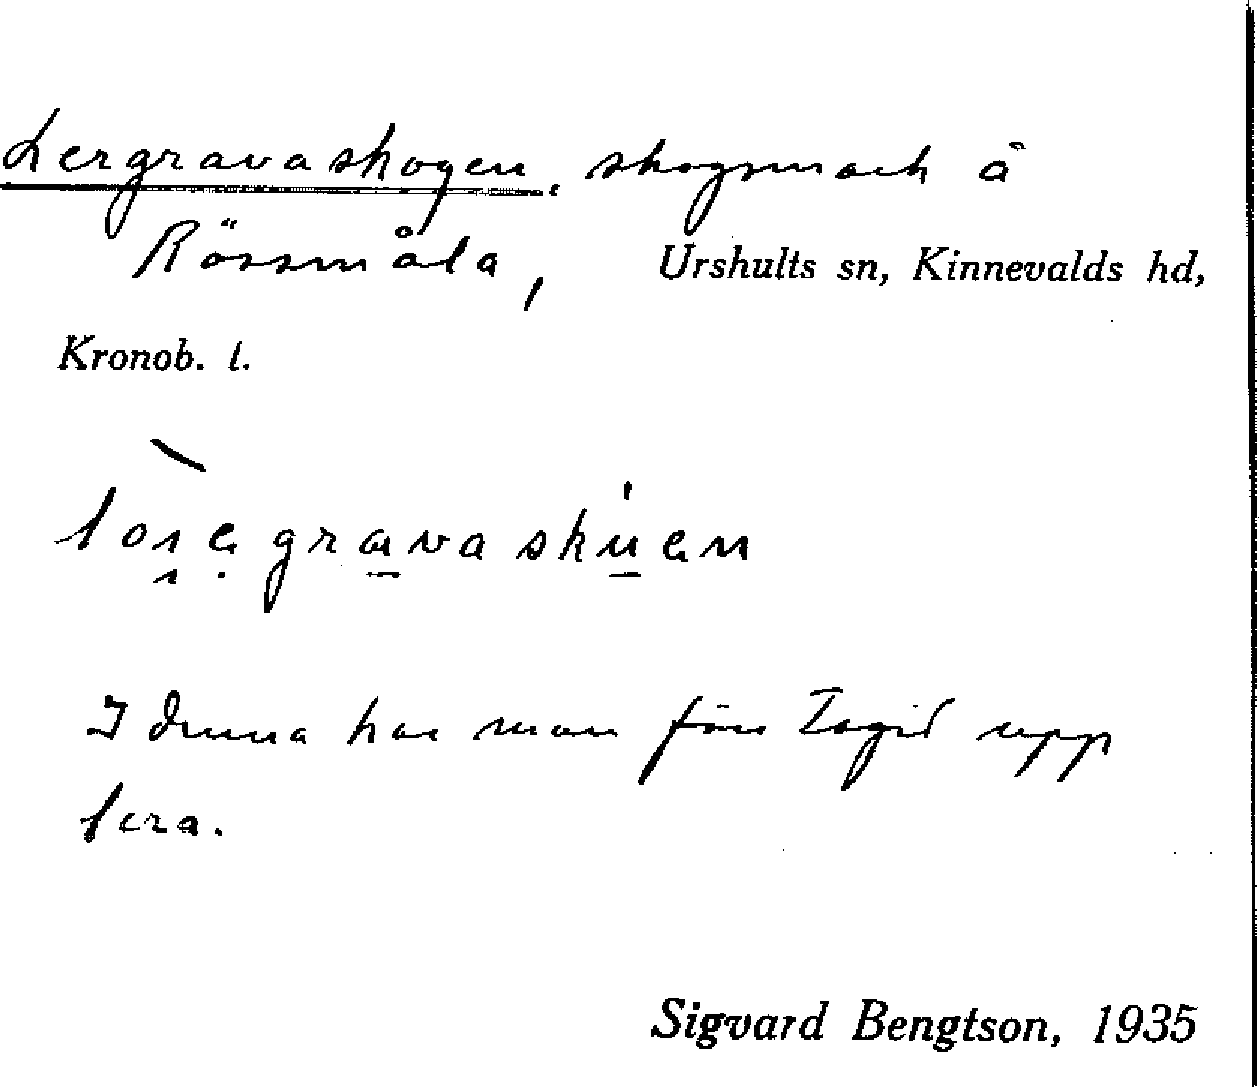 Lergravaskogen, skogsmark å
Rössmåla, Urshults sn, Kinnevalds hd,
Kronob. l.
I denna har man förr tagit upp
lera.
Sigvard Bengtson, 1935